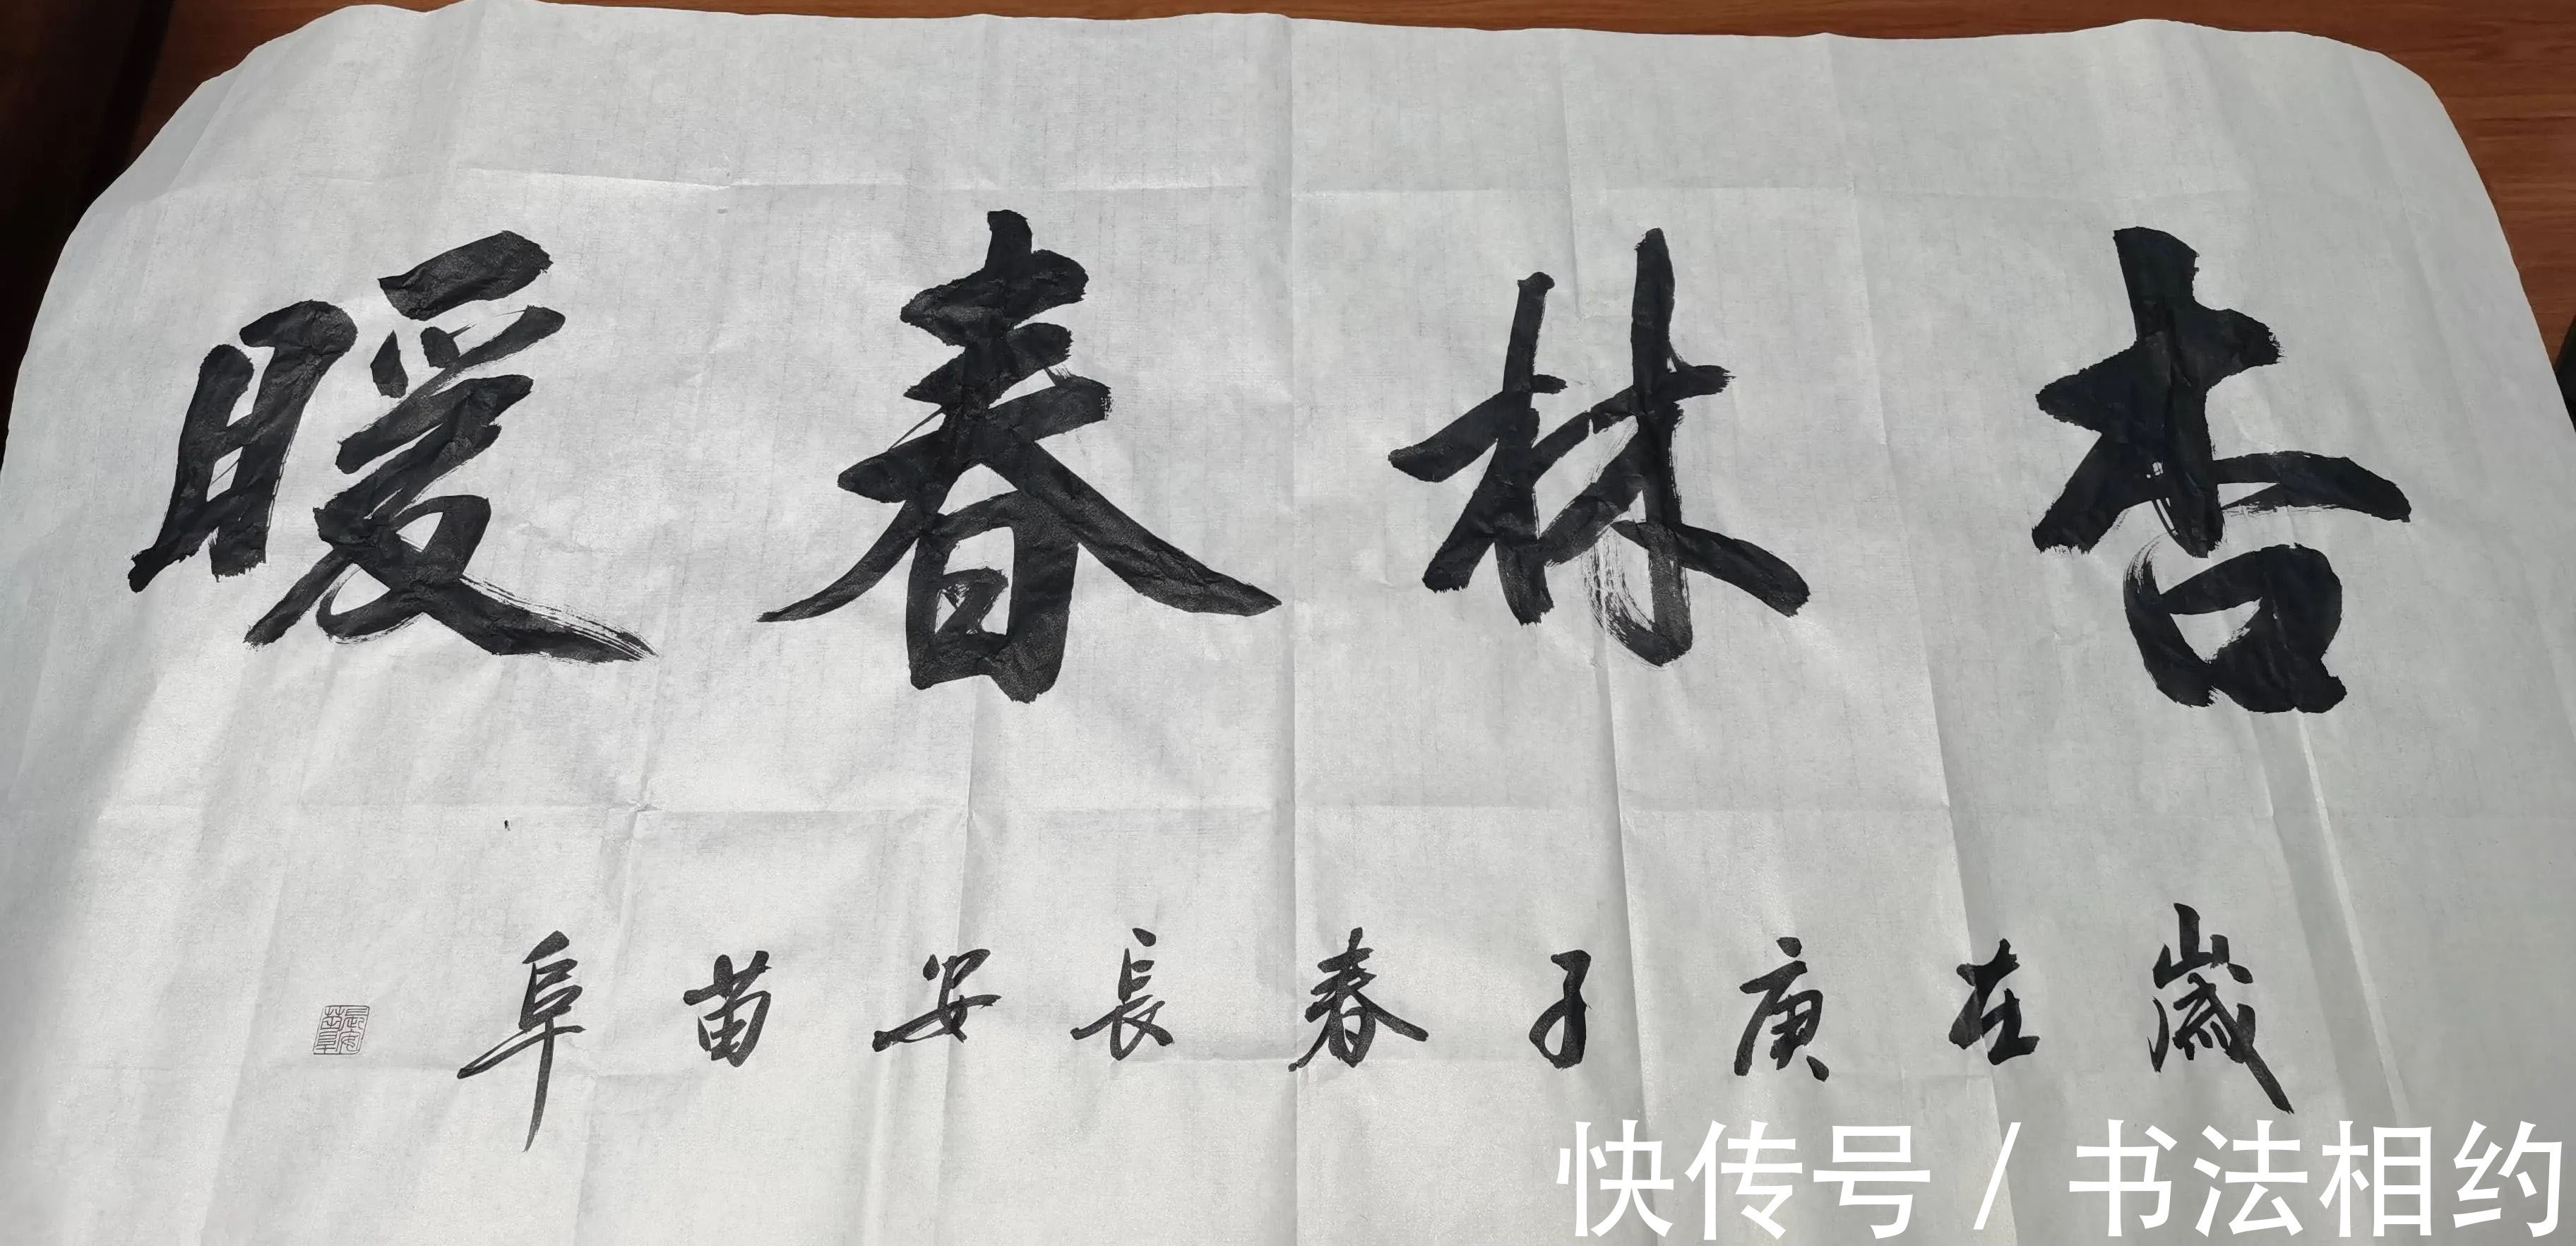 杏林春暖
歲在庚子春長安苗阜
長安苗阜
快传号/书法相约